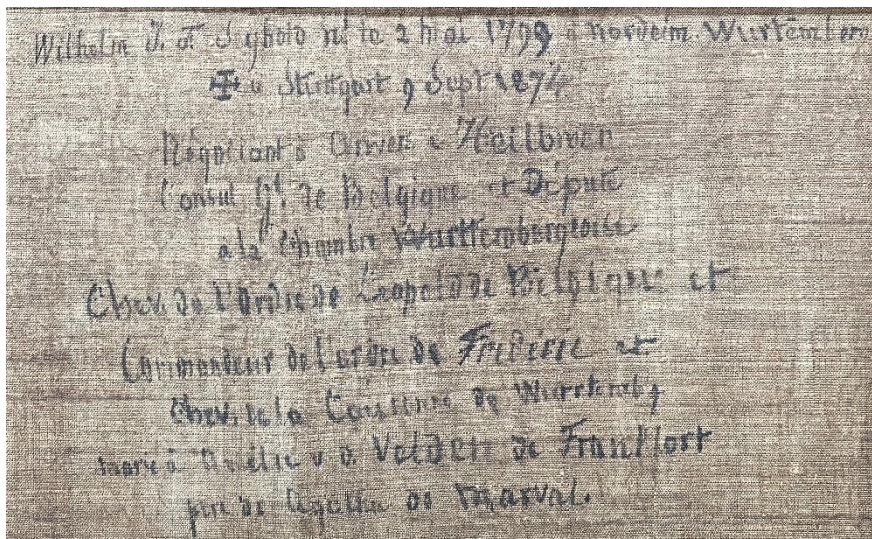 Wilhelm J. F. Sybold né le 2 Mai 1799 à Nordeim. Wurtemberg
✠ à Stuttgart 9 Sept 1874
Négotiant à Anvers & Heilbronn
Consul Gl. de Belgique et Député
à la Chambre Wurttembergeoise
Chev. de l'Ordre de Leopold de Belgique et
Commandeur de l'ordre de Frédéric et
Chev. de la Couronne de Wurttembg
marié à Amélie v. d. Velden de Frankfort
père de Agathe de Marval.